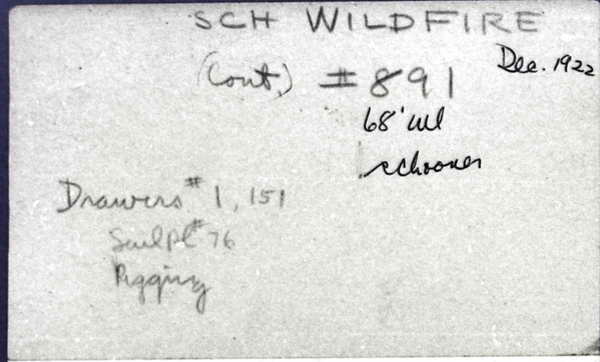 SCH WILDFIRE
Dec. 1922
(Cont.) #891
68' wl
schooner
Drawers #1, 151
Sailpl # 76
Rigging